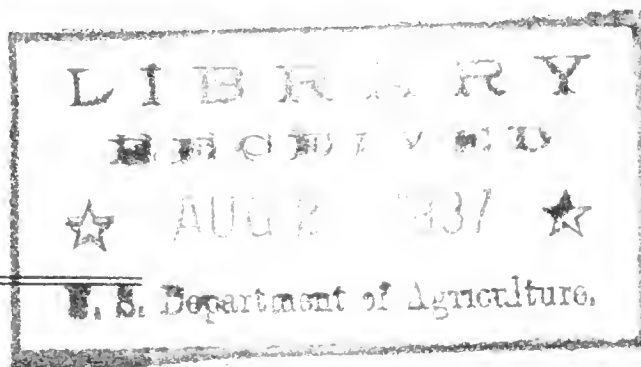 LIBRARY
RECEIVED
☆ AUG 2 1937 ☆
U. S. Department of Agriculture.